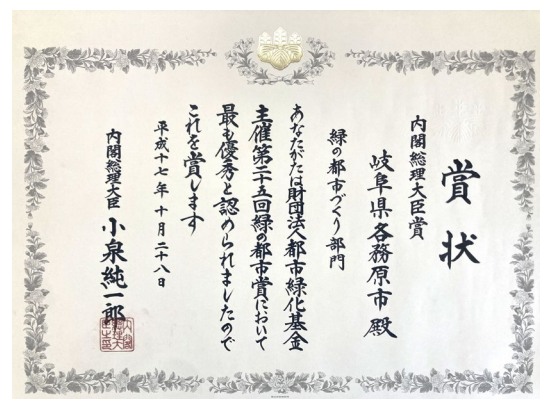 賞状
内閣総理大臣賞
岐阜県各務原市殿
緑の都市づくり部門
あなたがたは財団法人都市緑化基金
主催第二十五回緑の都市賞において
最も優秀と認められましたので
これを賞します
平成十七年十月二十八日
内閣総理大臣 小泉純一郎